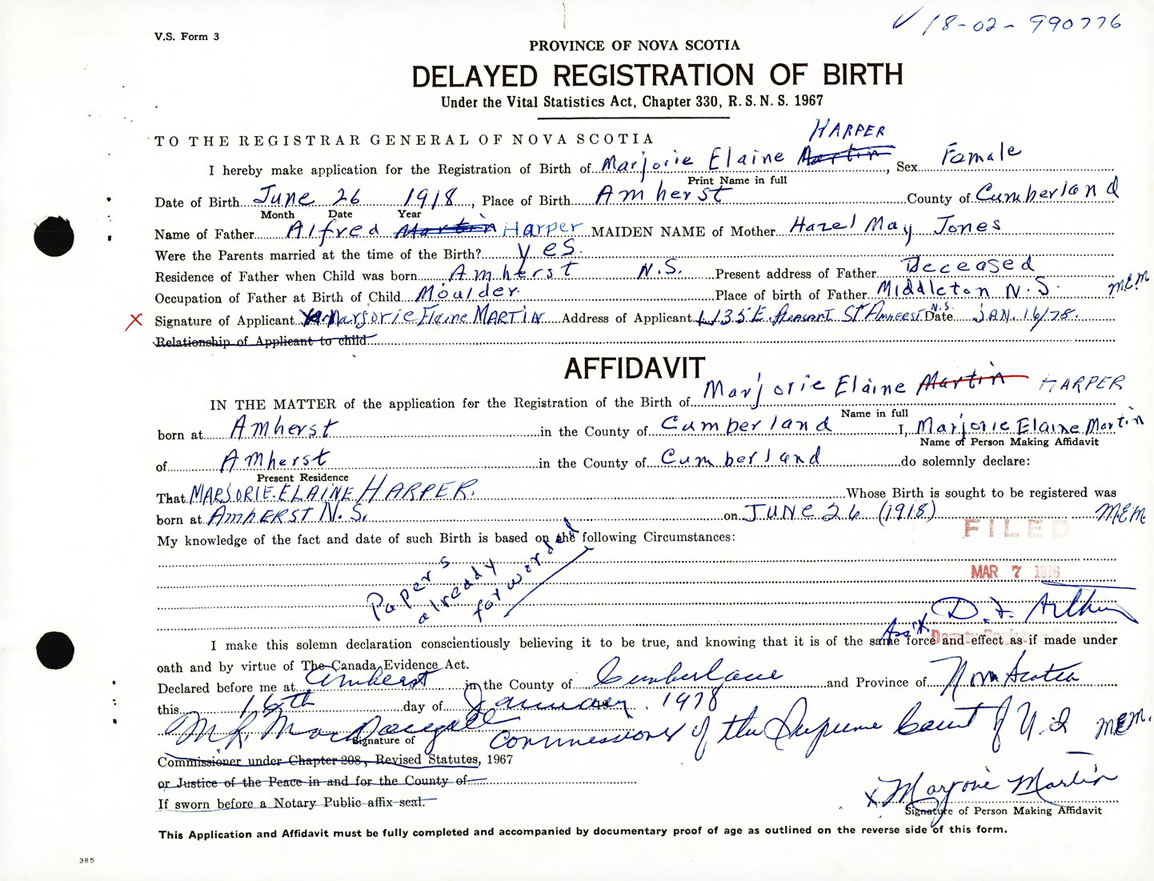 V 18-02-990776
V.S. Form 3
PROVINCE OF NOVA SCOTIA
DELAYED REGISTRATION OF BIRTH
Under the Vital Statistics Act, Chapter 330, R.S.N.S. 1967
TO THE REGISTRAR GENERAL OF NOVA SCOTIA
HARPER
I hereby make application for the Registration of Birth of Marjorie Elaine Martin, Sex Female
Print Name in full
Date of Birth June 26 1918, Place of Birth Amherst County of Cumberland
Month Date Year
Name of Father Alfred Martin Harper MAIDEN NAME of Mother Hazel May Jones
Were the Parents married at the time of the Birth? Yes.
Residence of Father when Child was born Amherst N.S. Present address of Father Deceased
Occupation of Father at Birth of Child Moulder Place of birth of Father Middleton N.S. MEM
X Signature of Applicant Marjorie Elaine MARTIN Address of Applicant 135 E. PLEASANT ST AMHERST N.S. Date JAN. 16/78.
Relationship of Applicant to child
AFFIDAVIT
IN THE MATTER of the application for the Registration of the Birth of Marjorie Elaine Martin HARPER
Name in full
born at Amherst in the County of Cumberland I, Marjorie Elaine Martin
Name of Person Making Affidavit
of Amherst in the County of Cumberland do solemnly declare:
Present Residence
That MARJORIE ELAINE HARPER. Whose Birth is sought to be registered was
born at AMHERST N.S. on JUNE 26 (1918) MEM
My knowledge of the fact and date of such Birth is based on the following Circumstances:
FILED
MAR 7
Papers
already
forworded
Ass't D. F. Arthur
I make this solemn declaration conscientiously believing it to be true, and knowing that it is of the same force and effect as if made under
oath and by virtue of The Canada Evidence Act.
Declared before me at Amherst in the County of Cumberland and Province of Nova Scotia
this 16th day of January, 1978
Signature of Commissioner of the Supreme Court of N.S MEM.
Commissioner under Chapter 208, Revised Statutes, 1967
or Justice of the Peace in and for the County of
If sworn before a Notary Public affix seal.
X Marjorie Martin
Signature of Person Making Affidavit
This Application and Affidavit must be fully completed and accompanied by documentary proof of age as outlined on the reverse side of this form.
385